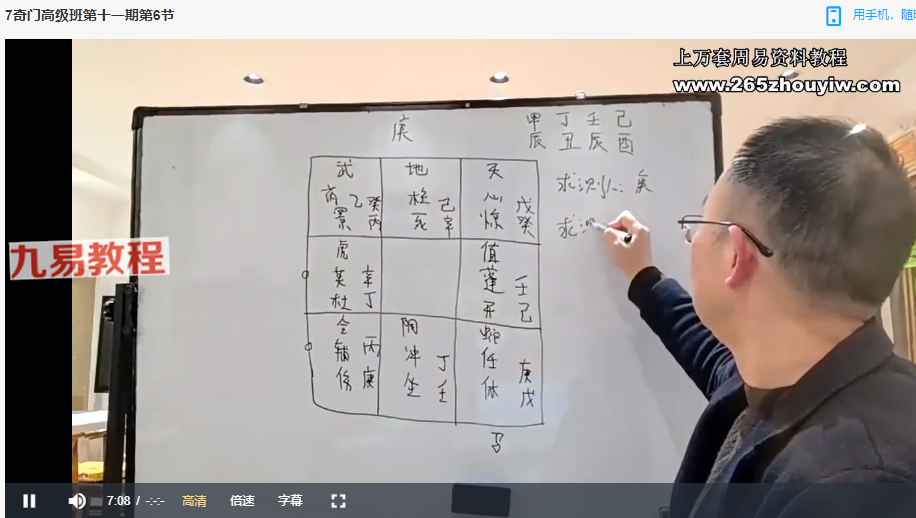 7奇门高级班第十一期第6节
用手机，随
上万套周易资料教程
www.265zhouyiw.com
九易教程
庚
甲 丁 壬 己
辰 丑 辰 酉
武 地 天
芮 乙 癸 柱 己 心 戊
景 丙 死 辛 惊 癸
求测人：
求测
虎 值
英 辛 蓬 壬
杜 丁 开 己
合 阴 蛇
辅 丙 冲 丁 任 庚
伤 庚 生 壬 休 戊
马
7:08 / -:-
高清
倍速
字幕